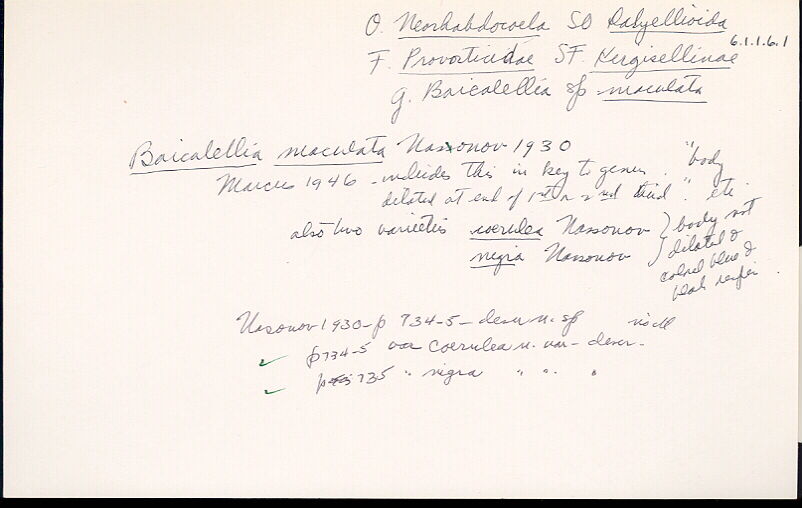 O. Neorhabdocoela SO Dalyellioida
6.1.1.6.1
F. Provorticidae SF. Kergisellinae
g. Baicalellia sp maculata
Baicalellia maculata Nasonov 1930
Marcus 1946 - includes this in key to genus. "body
dilated at end of 1st or 2nd third". etc.
also two varieties coerulea Nassonov } body not
nigra Nassonov } dilated &
colored blue &
black respec.
Nasonov 1930 - p 734-5 - descr n. sp
✓ p734-5 var Coerulea n. var - descr.
✓ p 735 " nigra " " "